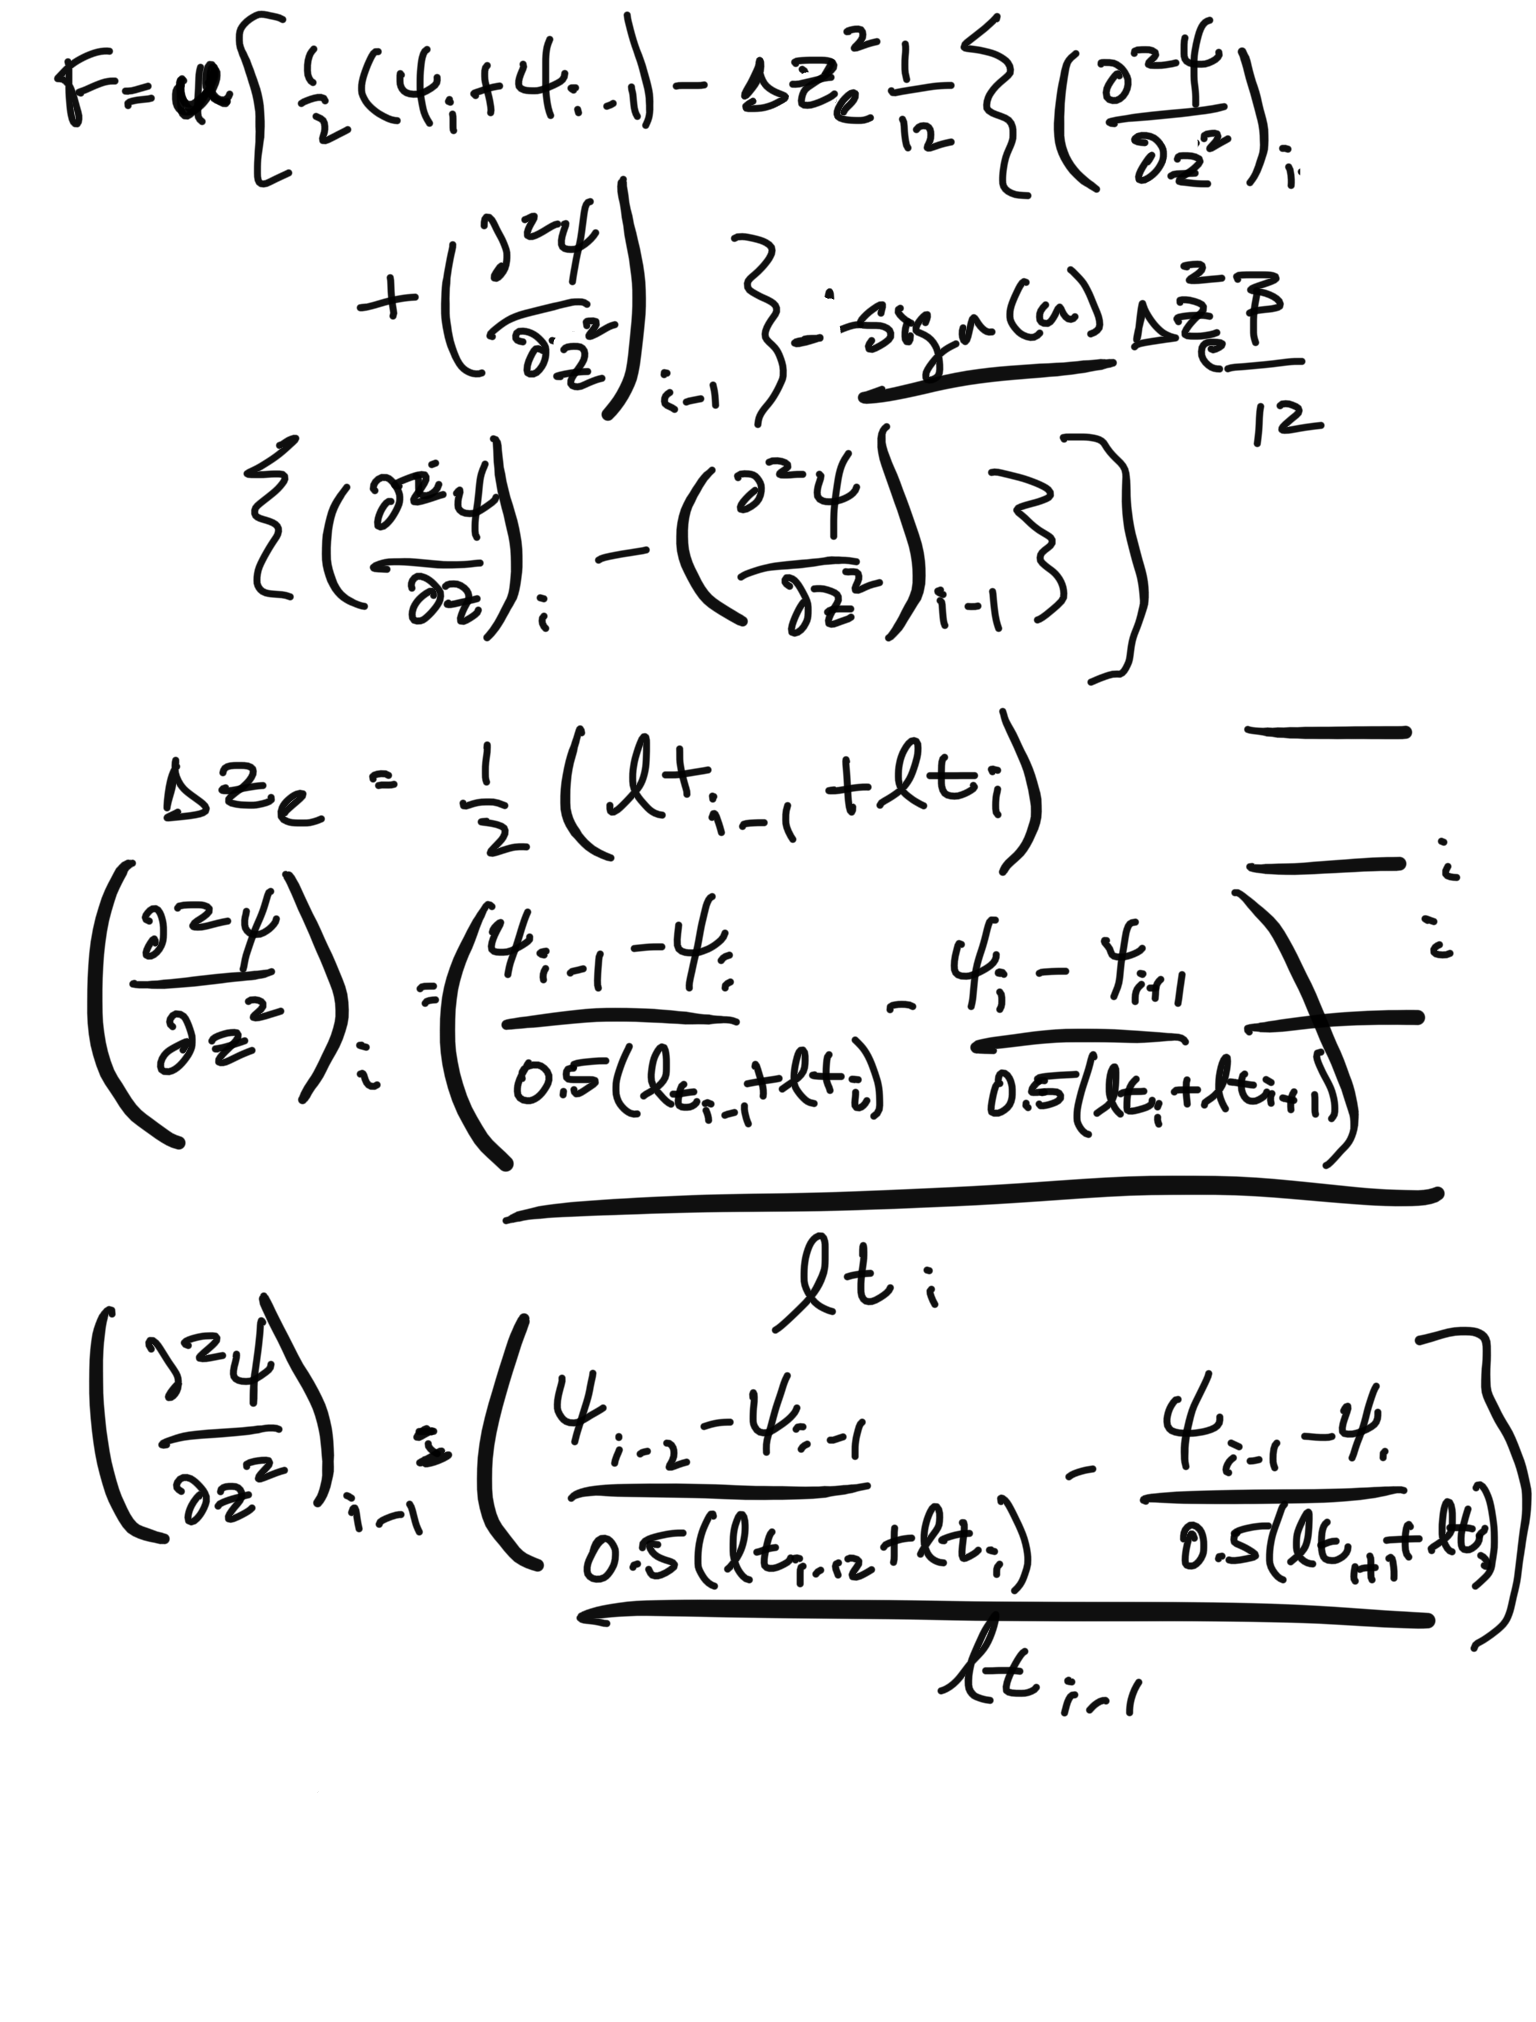 F = [ 1/2 (ψ_i + ψ_{i-1}) - Δz_e^2 1/12 { (∂^2ψ/∂z^2)_i
+ (∂^2ψ/∂z^2)_{i-1} } - sign(u) Δz_e^2 β/12
{ (∂^2ψ/∂z)_i - (∂^2ψ/∂z^2)_{i-1} } ]
Δz_e = 1/2 (lt_{i-1} + lt_i)
i
(∂^2ψ/∂z^2)_i = ( (ψ_{i-1} - ψ_i)/(0.5(lt_{i-1} + lt_i)) - (ψ_i - ψ_{i+1})/(0.5(lt_i + lt_{i+1})) ) / lt_i
i
(∂^2ψ/∂z^2)_{i-1} = ( (ψ_{i-2} - ψ_{i-1})/(0.5(lt_{i-2} + lt_i)) - (ψ_{i-1} - ψ_i)/(0.5(lt_{i+1} + lt_i)) ] / lt_{i-1}